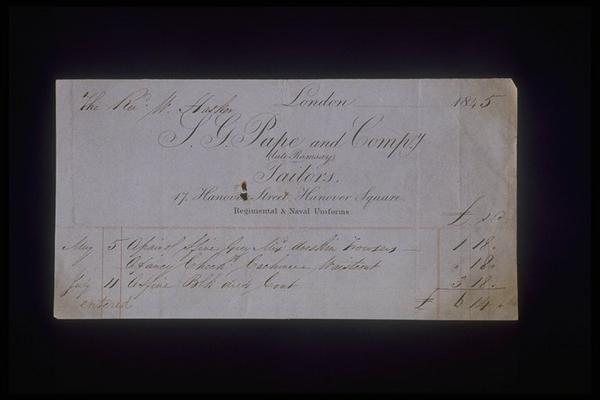 The Revd. W. London 1845
S. G. Pape and Compy
(late Ramsay)
Tailors.
17, Hanover Street, Hanover Square
Regimental & Naval Uniforms
£ s d
May 5 A pair of Sfine Grey Mix doeskin Trousers — 1 18 .
A fancy Check Cachmere Waistcoat . 18 .
July 11 A Sfine Blk dress Coat 3 18 .
entered £ 6 14